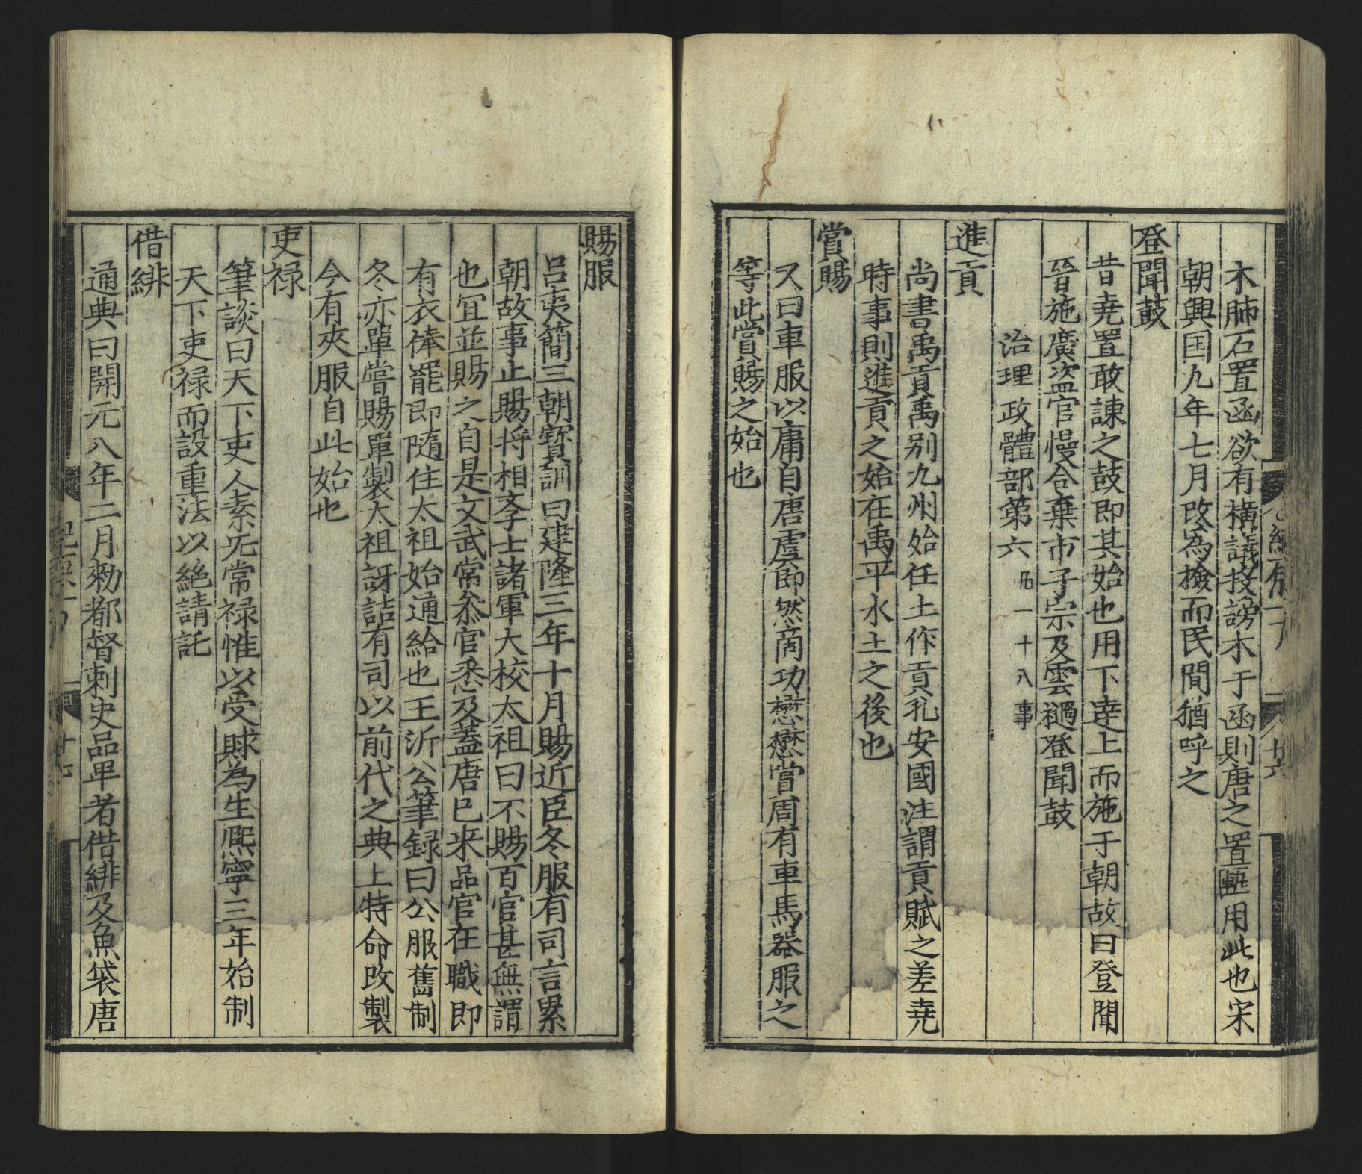 木肺石置函欲有橫議投謗木于函則唐之置甌用此也宋
朝興国九年七月改為檢而民間猶呼之
登聞鼓
昔堯置敢諫之鼓即其始也用下達上而施于朝故曰登聞
晉施廣盜官幔令棄市子宗及雲檛登聞鼓
治理政體部第六 凡一十八事
進貢
尚書禹貢禹别九州始任土作貢孔安國注謂貢賦之差堯
時事則進貢之始在禹平水土之後也
賞賜
又曰車服以庸自唐虞即然商功懋懋賞周有車馬器服之
等此賞賜之始也
賜服
吕夷簡三朝寳訓曰建隆三年十月賜近臣冬服有司言累
朝故事止賜将相斈士諸軍大校太祖曰不賜百官甚無謂
也冝並賜之自是文武常叅官悉及蓋唐已来品官在職即
有衣俸罷即隨住太祖始通給也王沂公筆録曰公服舊制
冬亦單嘗賜單製太祖訝詰有司以前代之典上特命改製
今有夾服自此始也
吏禄
筆談曰天下吏人素无常禄惟以受賕為生熈寧三年始制
天下吏禄而設重法以絶請託
借緋
通典曰開元八年二月勑都督刺史品卑者借緋及魚袋唐